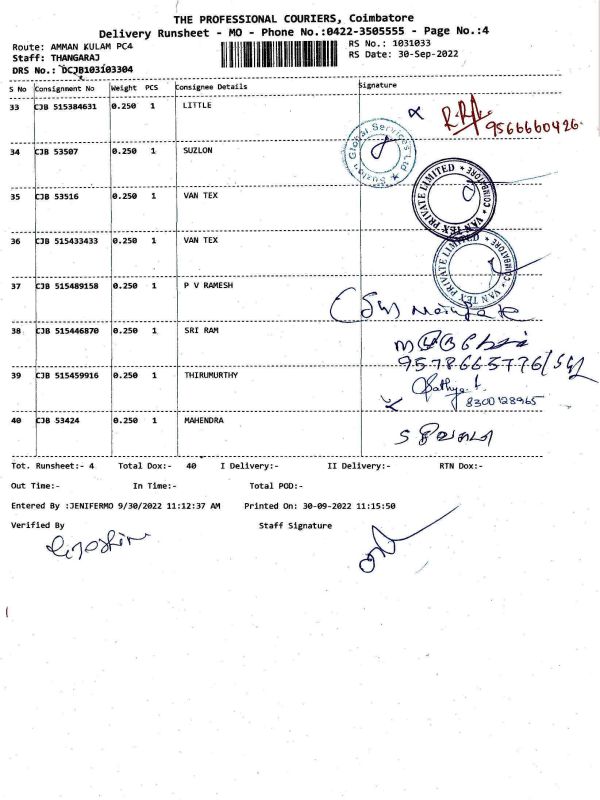 THE PROFESSIONAL COURIERS, Coimbatore
Delivery Runsheet - MO - Phone No.:0422-3505555 - Page No.:4
Route: AMMAN KULAM PC4 RS No.: 1031033
Staff: THANGARAJ RS Date: 30-Sep-2022
DRS No.: DCJB103103304
S No Consignment No Weight PCS Consignee Details Signature
33 CJB 515384631 0.250 1 LITTLE
9566660426
34 CJB 53507 0.250 1 SUZLON
Suzlon Global Services Ltd
35 CJB 53516 0.250 1 VAN TEX
VAN TEX PRIVATE LIMITED * COIMBATORE *
36 CJB 515433433 0.250 1 VAN TEX
VAN TEX PRIVATE LIMITED * COIMBATORE *
37 CJB 515489158 0.250 1 P V RAMESH
38 CJB 515446870 0.250 1 SRI RAM
9578665776
39 CJB 515459916 0.250 1 THIRUMURTHY
Sathya
8300128965
40 CJB 53424 0.250 1 MAHENDRA
Tot. Runsheet:- 4 Total Dox:- 40 I Delivery:- II Delivery:- RTN Dox:-
Out Time:- In Time:- Total POD:-
Entered By :JENIFERMO 9/30/2022 11:12:37 AM Printed On: 30-09-2022 11:15:50
Verified By Staff Signature